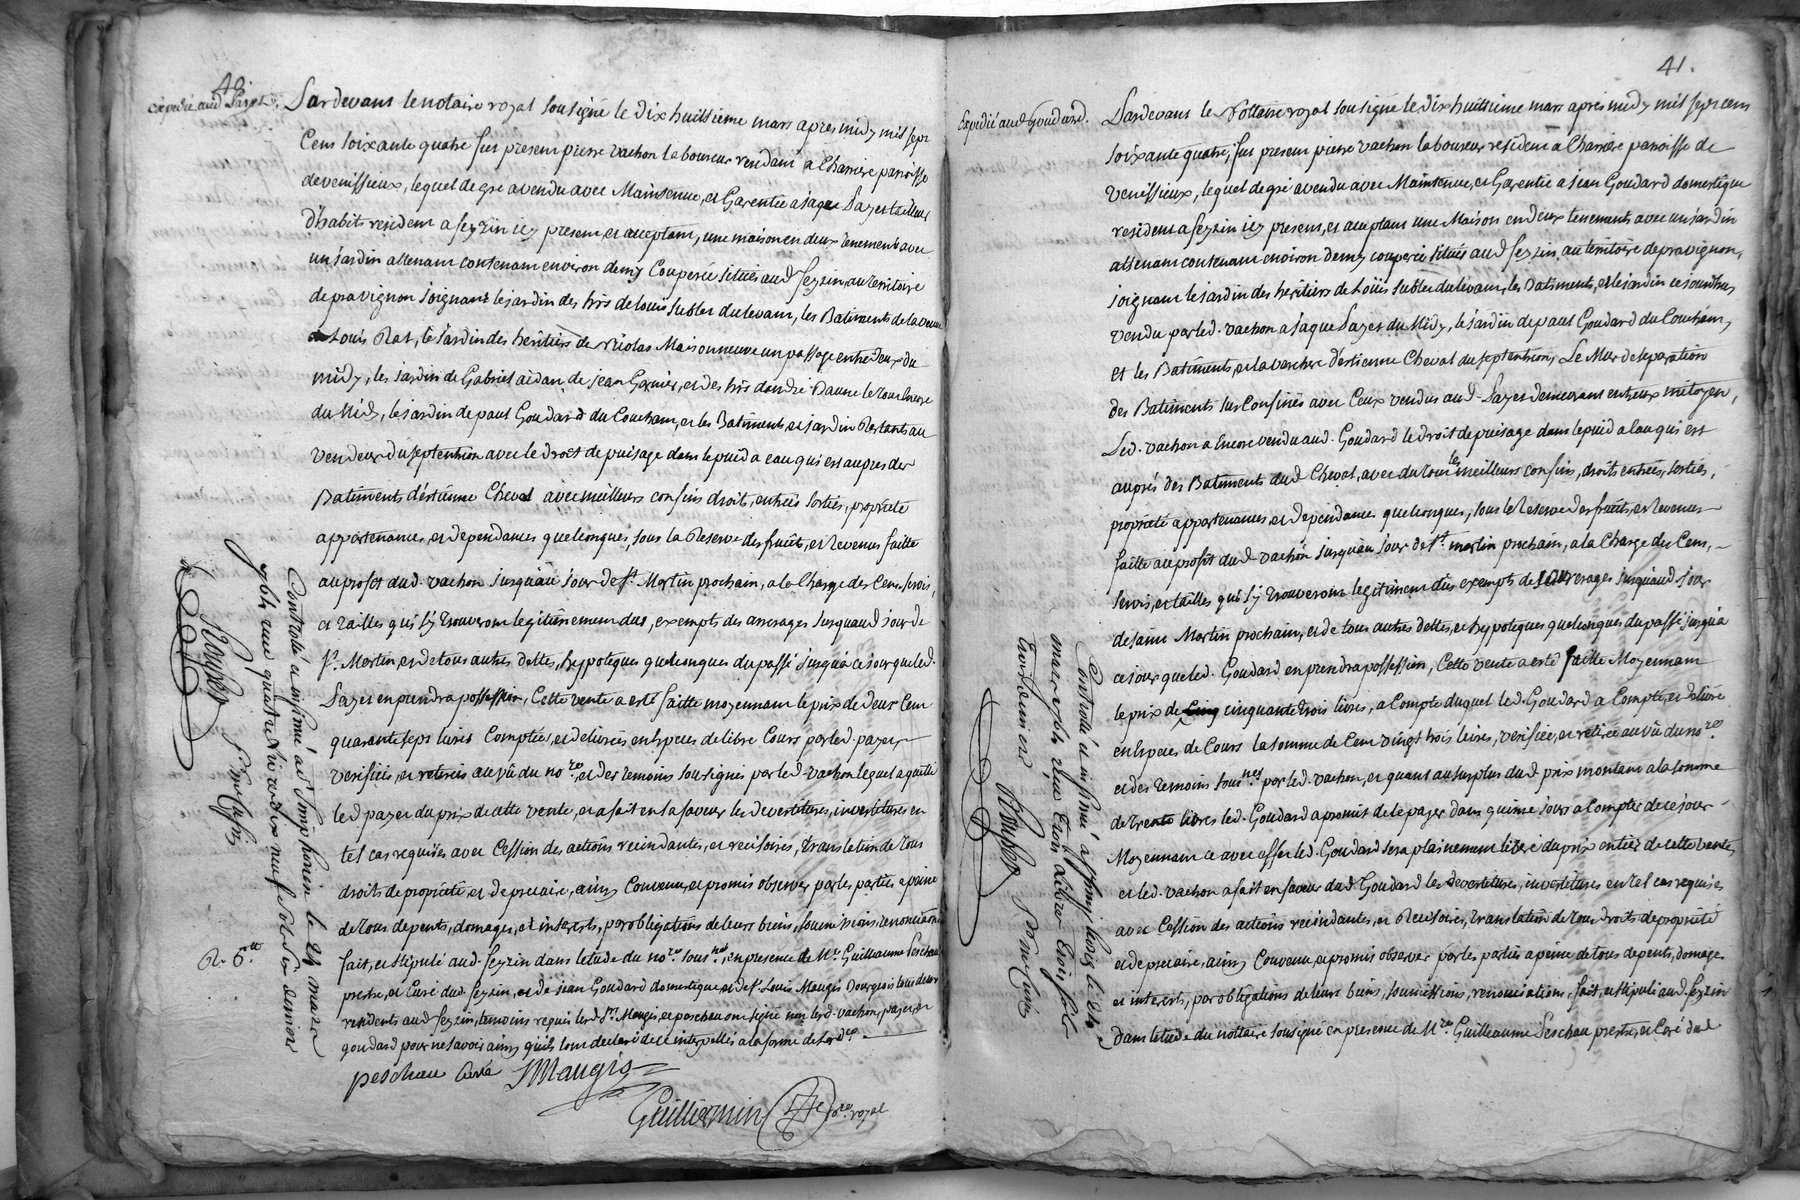 40
Expedié aud Payet.
Pardevant le notaire royal sousigné le dix huitsieme mars apres midy mil sept
Cens soixante quatre fut present pierre vachon laboureur residant a Charriere paroisse
de venissieux, lequel de gré a vendu avec Maintenue, et Garentie a Jaque Payet tailleur
D'habits resident a feyzin icy present et acceptant, une maison en deux tenements avec
un jardin attenant contenant environ demy Couperée situés aud feyzin au territoire
de pravignon joignant le jardin des hrs de Louis Sublet du levant, les Batiments de la veuve
Louis Rat, le jardin des héritiers de Nicolas Maisonneuve un passage entre deux du
midy, les jardin de Gabriel aidan de jean Garnier, et des hrs dandré
du Midy, le jardin de paul Goudard du Couchant, et les Batiments, et jardin Restants au
vendeur du septentrion avec le droit de puisage dans le puid a eau qui est aupres des
Batiments d'estienne Cheval avec meilleurs confins droits, entrées sorties, propriete
appartenances, et dependances quelconques, sous la Reserve des fruits, et Revenus faitte
au profit dud. vachon jusqu'au jour de st. Martin prochain, a la Charge des Cens, servis,
et tailles qui s'y trouveront legitimement dus, exempts des arrerages jusqu'aud jour de
st. Martin, et de tous autres dettes, hypoteques quelconques du passé jusqu'a ce jour que led.
Payet en prendra possession, Cette vente a esté faitte moyennant le prix de deux Cent
quarante sept livres Comptées, et delivrées en Especes de libre Cours par led. payet,
verifiées, et retirées au vû du nore, et des temoins sousignés par led. vachon lequel a quitté
led payet du prix de cette vente, et a fait en sa faveur les devestitures, investitures en
tel cas requises avec Cession des actions recindantes, et recisoires, translation de tous
droits de propriété et de precaire, ainsy Convenu, et promis observer par les parties a peine
de tous depents, domages, et interests, par obligations de leurs biens, soumissions, renonciations
fait, et stipulé aud. feyzin dans letude du nore. sousné, en presence de Mre. Guillaume Peschau
prestre, et Curé dud. feyzin, et de jean Goudard domestique, et de sr. Louis Maugis Bourgeois tous deux
residents aud feyzin, temoins requis led. sr. Maugis, et peschau ont signé non led. vachon, payet, et
goudard pour ne savoir ainsy qu'ils l'ont declaré de ce interpellés a la forme de lordce.
peschau Curé JMaugis
Guillermin nre. royal
Controllé et insinué a st Simphorien le 24 mars
1764 reçu quatre livres dix neuf sols six deniers
R. 6tt
41.
Expedié aud Goudard.
Pardevant le Nottaire royal sousigné le dix huitsieme mars apres midy mil sept cens
soixante quatre, fut present pierre vachon laboureur resident a Charriere paroisse de
venissieux, lequel de gré a vendu avec Maintenue, et Garentie a jean Goudard domestique
resident a feyzin icy present, et acceptant une Maison en deux tenements avec un jardin
attenant contenant environ demy couperée situés aud feyzin au territoire de pravignon,
joignant le jardin des heritiers de Loüis Sublet du levant, les Batiments, et le jardin ce jourdhuy
vendu par led. vachon a Jaque Payet du Midy, le jardin de paul Goudard du Couchant,
et les Batiments, et la verchere d'estienne Cheval du septentrion, Le Mur de separation
des Batiments sus Confinés avec Ceux vendus aud. Payet demeurant entreux mitoyen,
Led. vachon a Encore vendu aud. Goudard le droit de puisage dans le puid a eau qui est
auprés des Batiments dud Cheval, avec du tout les meilleurs confins, droits entrées, sorties,
proprieté appartenances, et dependances quelconques, sous la Reserve des fruits, et Revenus
faitte au profit dud vachon jusqu'au jour de st. martin prochain, a la Charge des Cens,
servis, et tailles qui s'y trouveront legitimement dûs exempts de tous arrerages jusqu'aud jour
de saint Martin prochain, et de tous autres dettes, et hypoteques quelconques du passé jusqu'a
ce jour que led. Goudard en prendra possession, Cette vente a esté faitte Moyennant
le prix de Cinq cinquante trois livres, a Compte duquel led. Goudard a Compté, et delivré
en Especes de Cours la somme de Cent vingt trois livres, verifiée, et retirée au vû du nore.
et des temoins sousnés par led. vachon, et quant au surplus dud. prix montant a la somme
de trente livres led. Goudard a promis de le payer dans quinze jours a Compter de ce jour
Moyennant ce avec effet led. Goudard sera plainement liberé du prix entier de cette vente,
et led. vachon a fait en faveur dud Goudard les devestitures, investitures en tel cas requises
avec Cession des actions recindantes, et Recisoires, translation de tous droits de propriété
et de precaire, ainsy Convenu, et promis observer par les parties a peine de tous depents, domages
et interests, par obligations de leurs biens, soumissions, renonciations, fait, et stipulé aud. feyzin
dans letude du nottaire sousigné en presence de Mre. Guillaume Peschau prestre, et Curé dud
Controllé et insinué a st Simphorien le 24
mars 1764 reçu trois livres trois sols
trois deniers